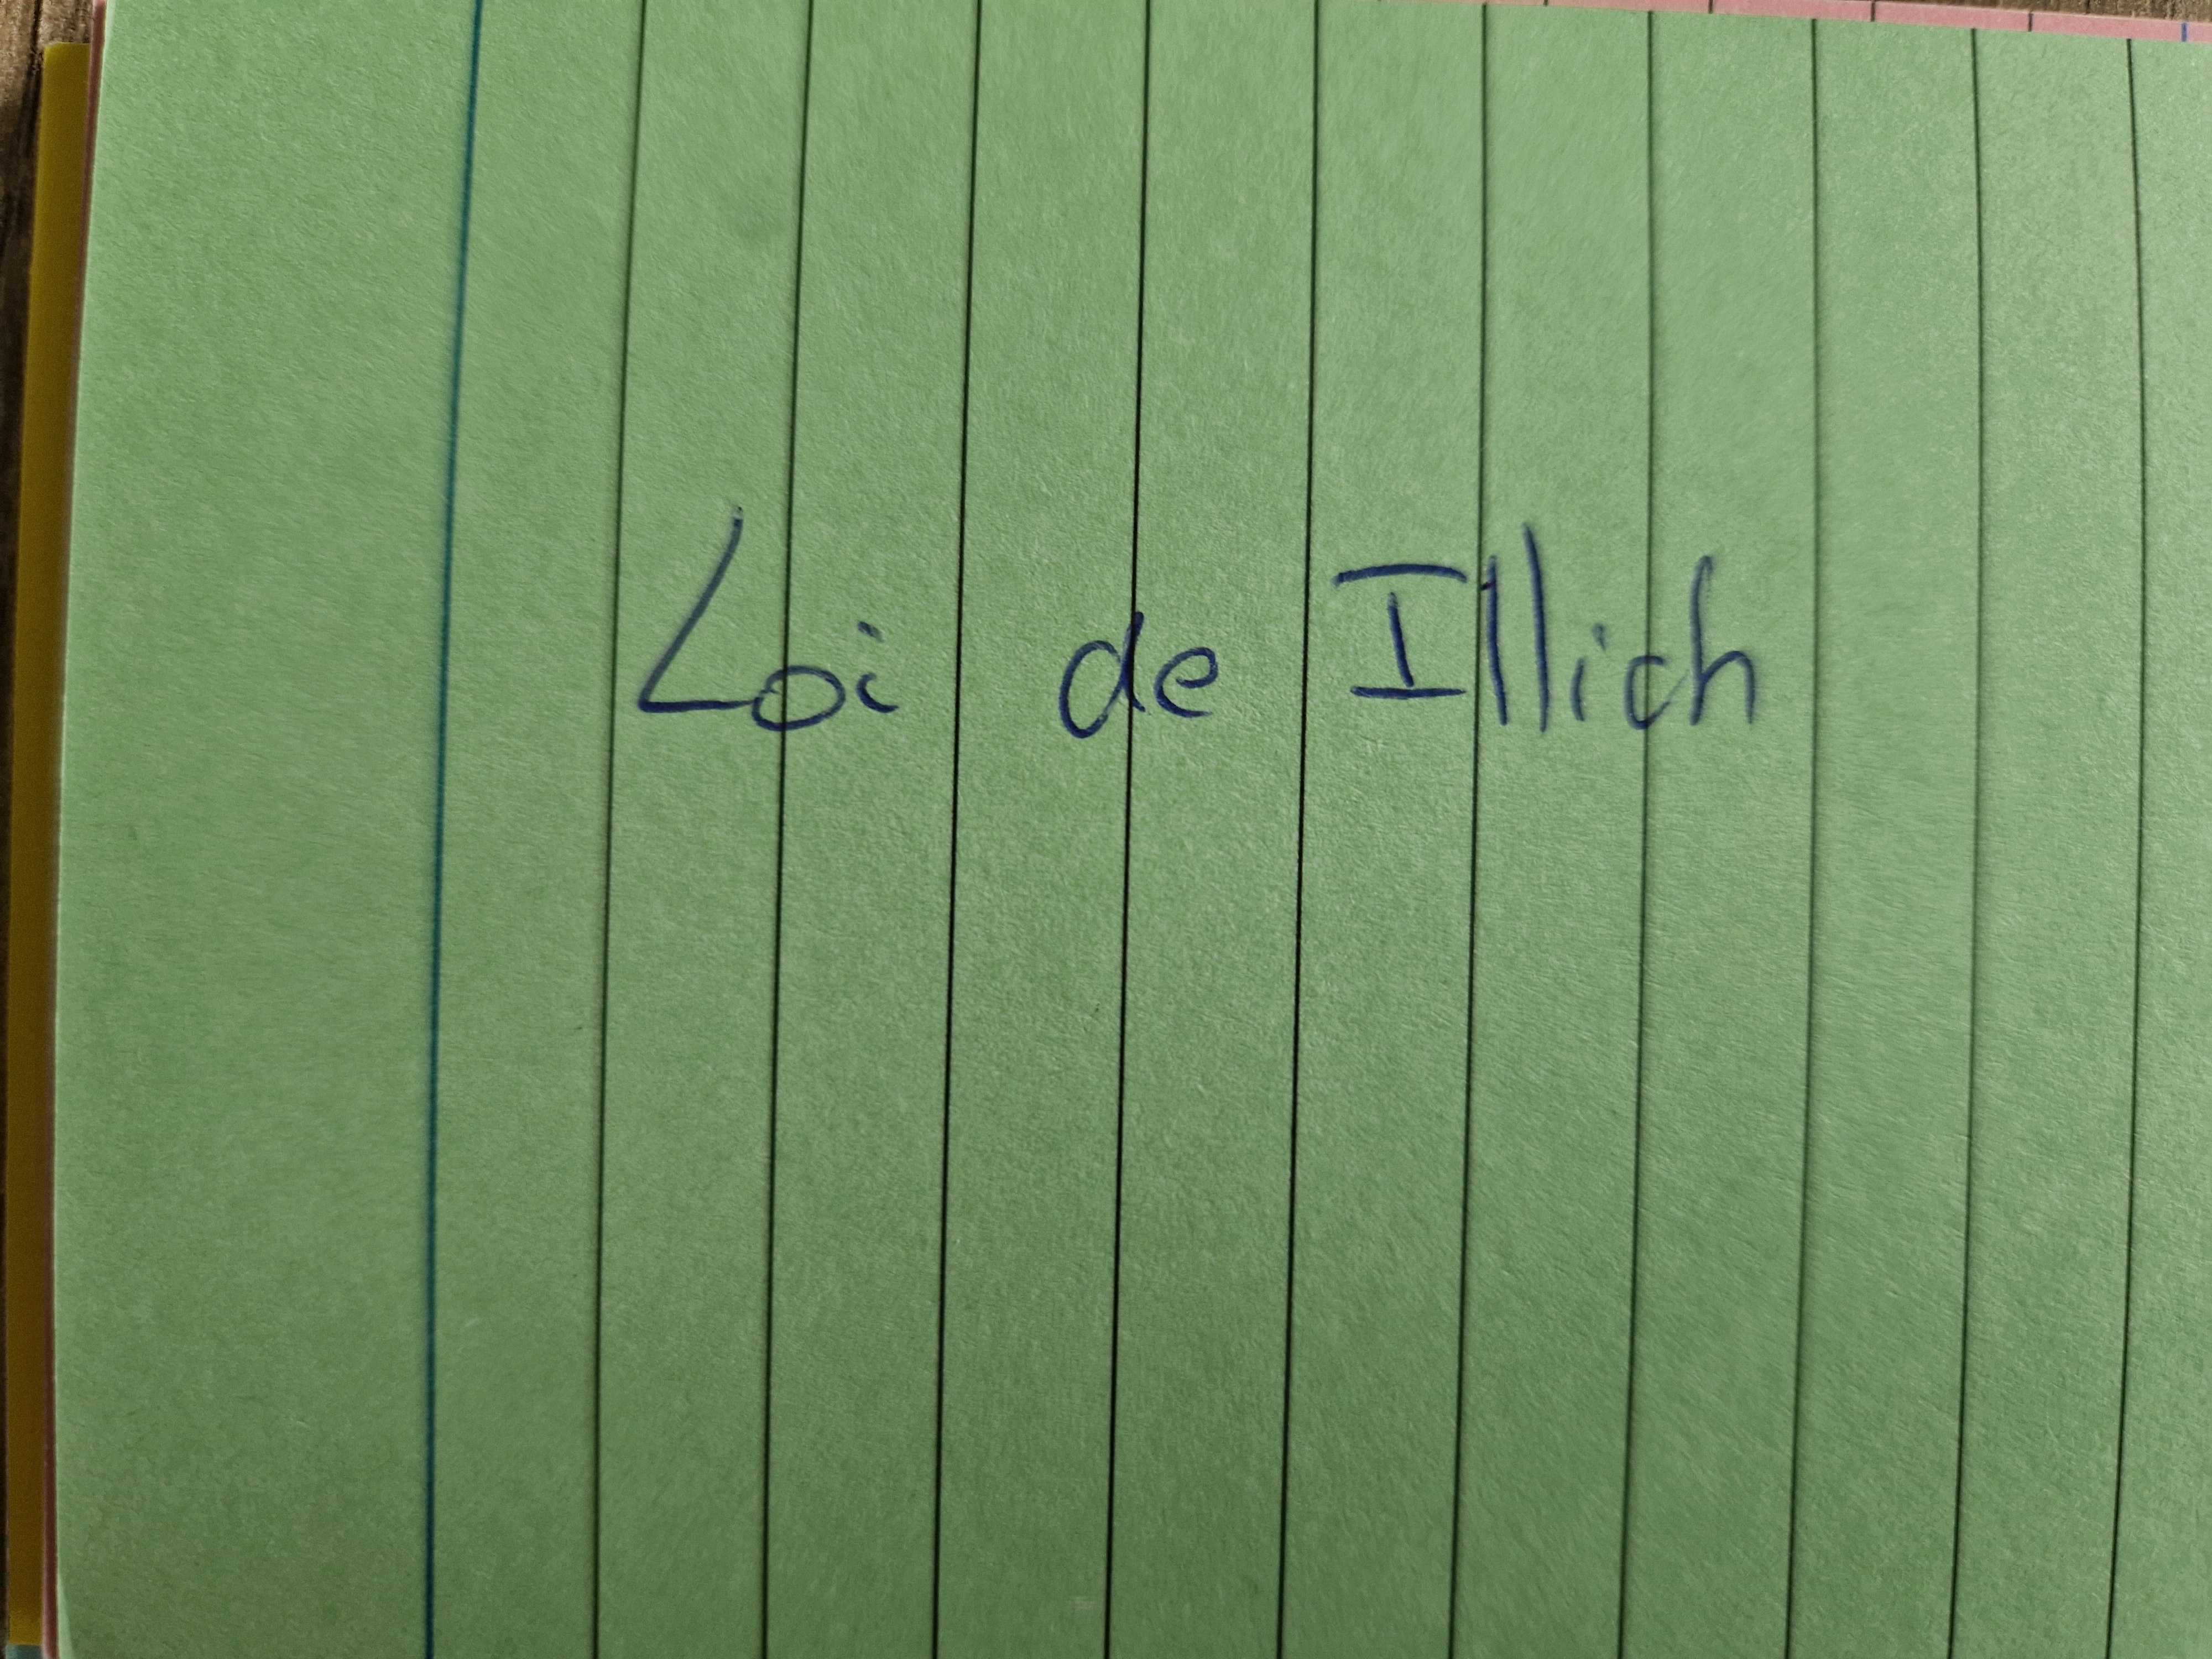 Loi de Illich